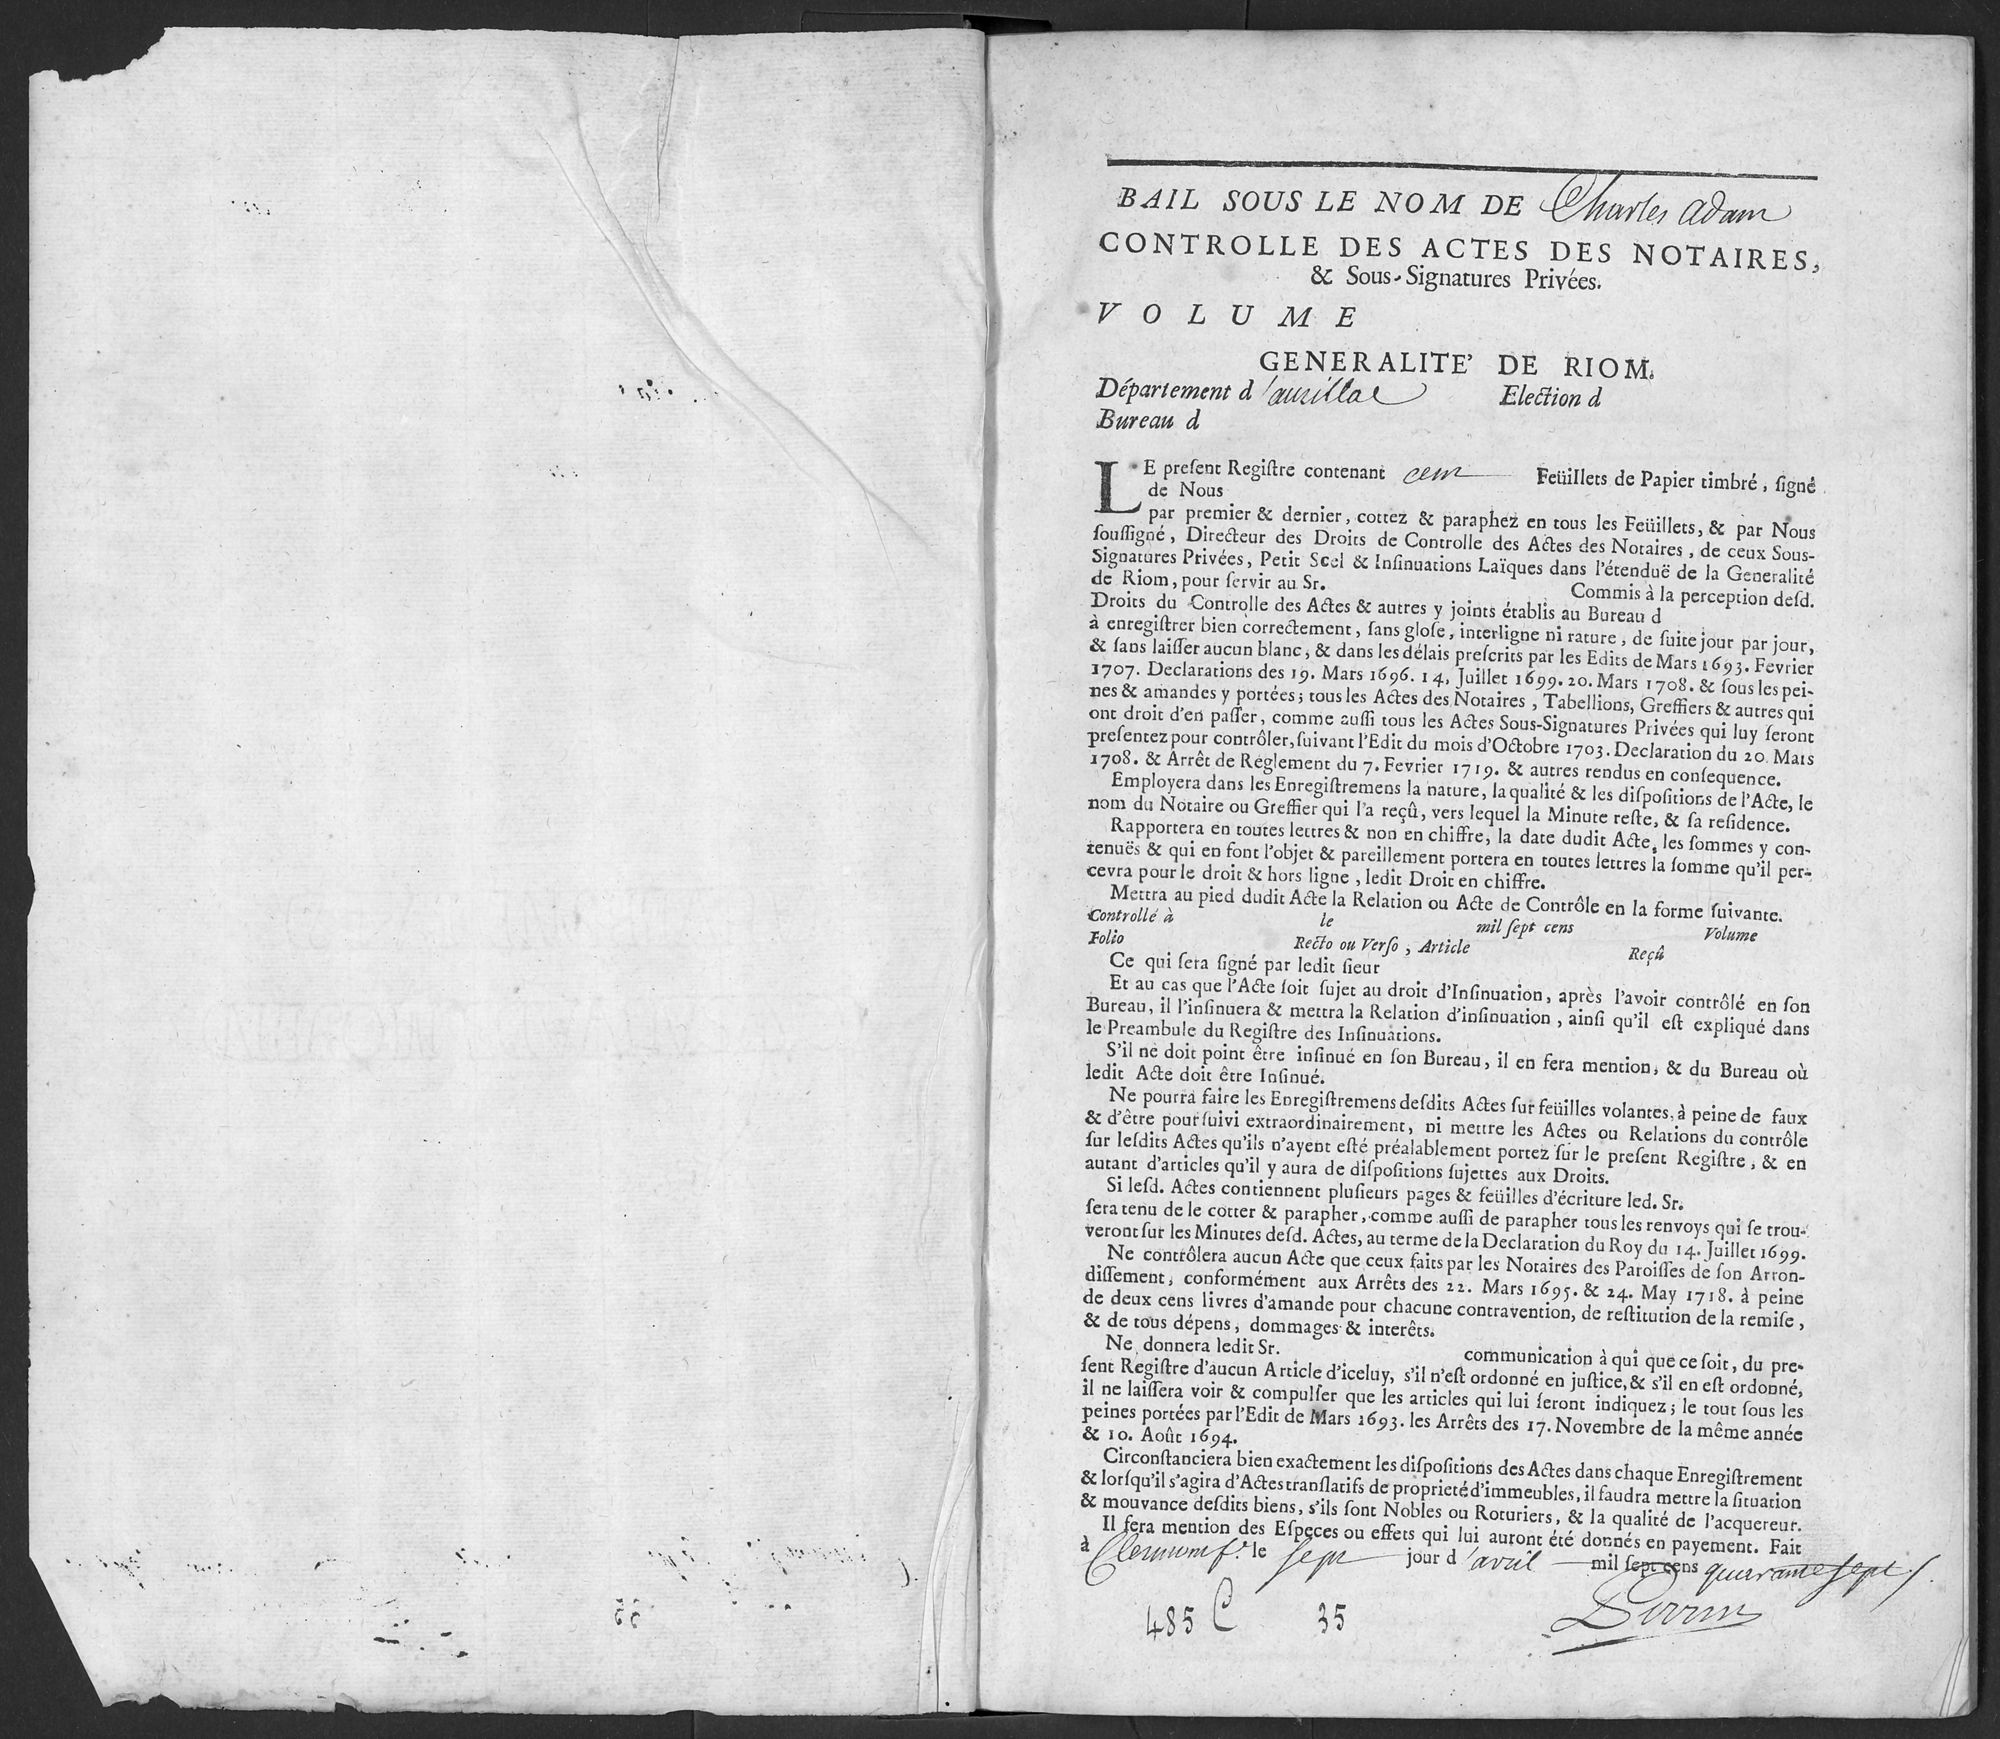 BAIL SOUS LE NOM DE Charles adam
CONTROLLE DES ACTES DES NOTAIRES,
& Sous-Signatures Privées.
VOLUME
GENERALITE' DE RIOM.
Département d'aurillac Election d
Bureau d
LE preſent Regiſtre contenant cent Feüillets de Papier timbré, ſigné
de Nous
par premier & dernier, cottez & paraphez en tous les Feüillets, & par Nous
ſouſſigné, Directeur des Droits de Controlle des Actes des Notaires, de ceux Sous-
Signatures Privées, Petit Scel & Inſinuations Laïques dans l'étenduë de la Generalité
de Riom, pour ſervir au Sr. Commis à la perception deſd.
Droits du Controlle des Actes & autres y joints établis au Bureau d
à enregiſtrer bien correctement, ſans gloſe, interligne ni rature, de ſuite jour par jour,
& ſans laiſſer aucun blanc, & dans les délais preſcrits par les Edits de Mars 1693. Fevrier
1707. Declarations des 19. Mars 1696. 14. Juillet 1699. 20. Mars 1708. & ſous les pei-
nes & amandes y portées; tous les Actes des Notaires, Tabellions, Greffiers & autres qui
ont droit d'en paſſer, comme auſſi tous les Actes Sous-Signatures Privées qui luy ſeront
preſentez pour contrôler, ſuivant l'Edit du mois d'Octobre 1703. Declaration du 20. Mars
1708. & Arrêt de Reglement du 7. Fevrier 1719. & autres rendus en conſequence.
Employera dans les Enregiſtremens la nature, la qualité & les diſpoſitions de l'Acte, le
nom du Notaire ou Greffier qui l'a reçû, vers lequel la Minute reſte, & ſa reſidence.
Rapportera en toutes lettres & non en chiffre, la date dudit Acte, les ſommes y con-
tenuës & qui en font l'objet & pareillement portera en toutes lettres la ſomme qu'il per-
cevra pour le droit & hors ligne, ledit Droit en chiffre.
Mettra au pied dudit Acte la Relation ou Acte de Contrôle en la forme ſuivante.
Controllé à le mil ſept cens Volume
Folio Recto ou Verſo, Article Reçû
Ce qui ſera ſigné par ledit ſieur
Et au cas que l'Acte ſoit ſujet au droit d'Inſinuation, après l'avoir contrôlé en ſon
Bureau, il l'inſinuera & mettra la Relation d'inſinuation, ainſi qu'il eſt expliqué dans
le Preambule du Regiſtre des Inſinuations.
S'il ne doit point être inſinué en ſon Bureau, il en fera mention, & du Bureau où
ledit Acte doit être Inſinué.
Ne pourra faire les Enregiſtremens deſdits Actes ſur feüilles volantes, à peine de faux
& d'être pourſuivi extraordinairement, ni mettre les Actes ou Relations du contrôle
ſur leſdits Actes qu'ils n'ayent eſté préalablement portez ſur le preſent Regiſtre, & en
autant d'articles qu'il y aura de diſpoſitions ſujettes aux Droits.
Si leſd. Actes contiennent pluſieurs pages & feüilles d'écriture led. Sr.
ſera tenu de le cotter & parapher, comme auſſi de parapher tous les renvoys qui ſe trou-
veront ſur les Minutes deſd. Actes, au terme de la Declaration du Roy du 14. Juillet 1699.
Ne contrôlera aucun Acte que ceux faits par les Notaires des Paroiſſes de ſon Arron-
diſſement, conformément aux Arrêts des 22. Mars 1695. & 24. May 1718. à peine
de deux cens livres d'amande pour chacune contravention, de reſtitution de la remiſe,
& de tous dépens, dommages & interêts.
Ne donnera ledit Sr. communication à qui que ce ſoit, du pre-
ſent Regiſtre d'aucun Article d'iceluy, s'il n'eſt ordonné en juſtice, & s'il en eſt ordonné,
il ne laiſſera voir & compulſer que les articles qui lui ſeront indiquez; le tout ſous les
peines portées par l'Edit de Mars 1693. les Arrêts des 17. Novembre de la même année
& 10. Août 1694.
Circonſtanciera bien exactement les diſpoſitions des Actes dans chaque Enregiſtrement
& lorſqu'il s'agira d'Actes tranſlatifs de proprieté d'immeubles, il faudra mettre la ſituation
& mouvance deſdits biens, s'ils ſont Nobles ou Roturiers, & la qualité de l'acquereur.
Il fera mention des Eſpeces ou effets qui lui auront été donnés en payement. Fait
à Clermont f.t le sept jour d'avril mil ſept cens quarante sept
485 C 35